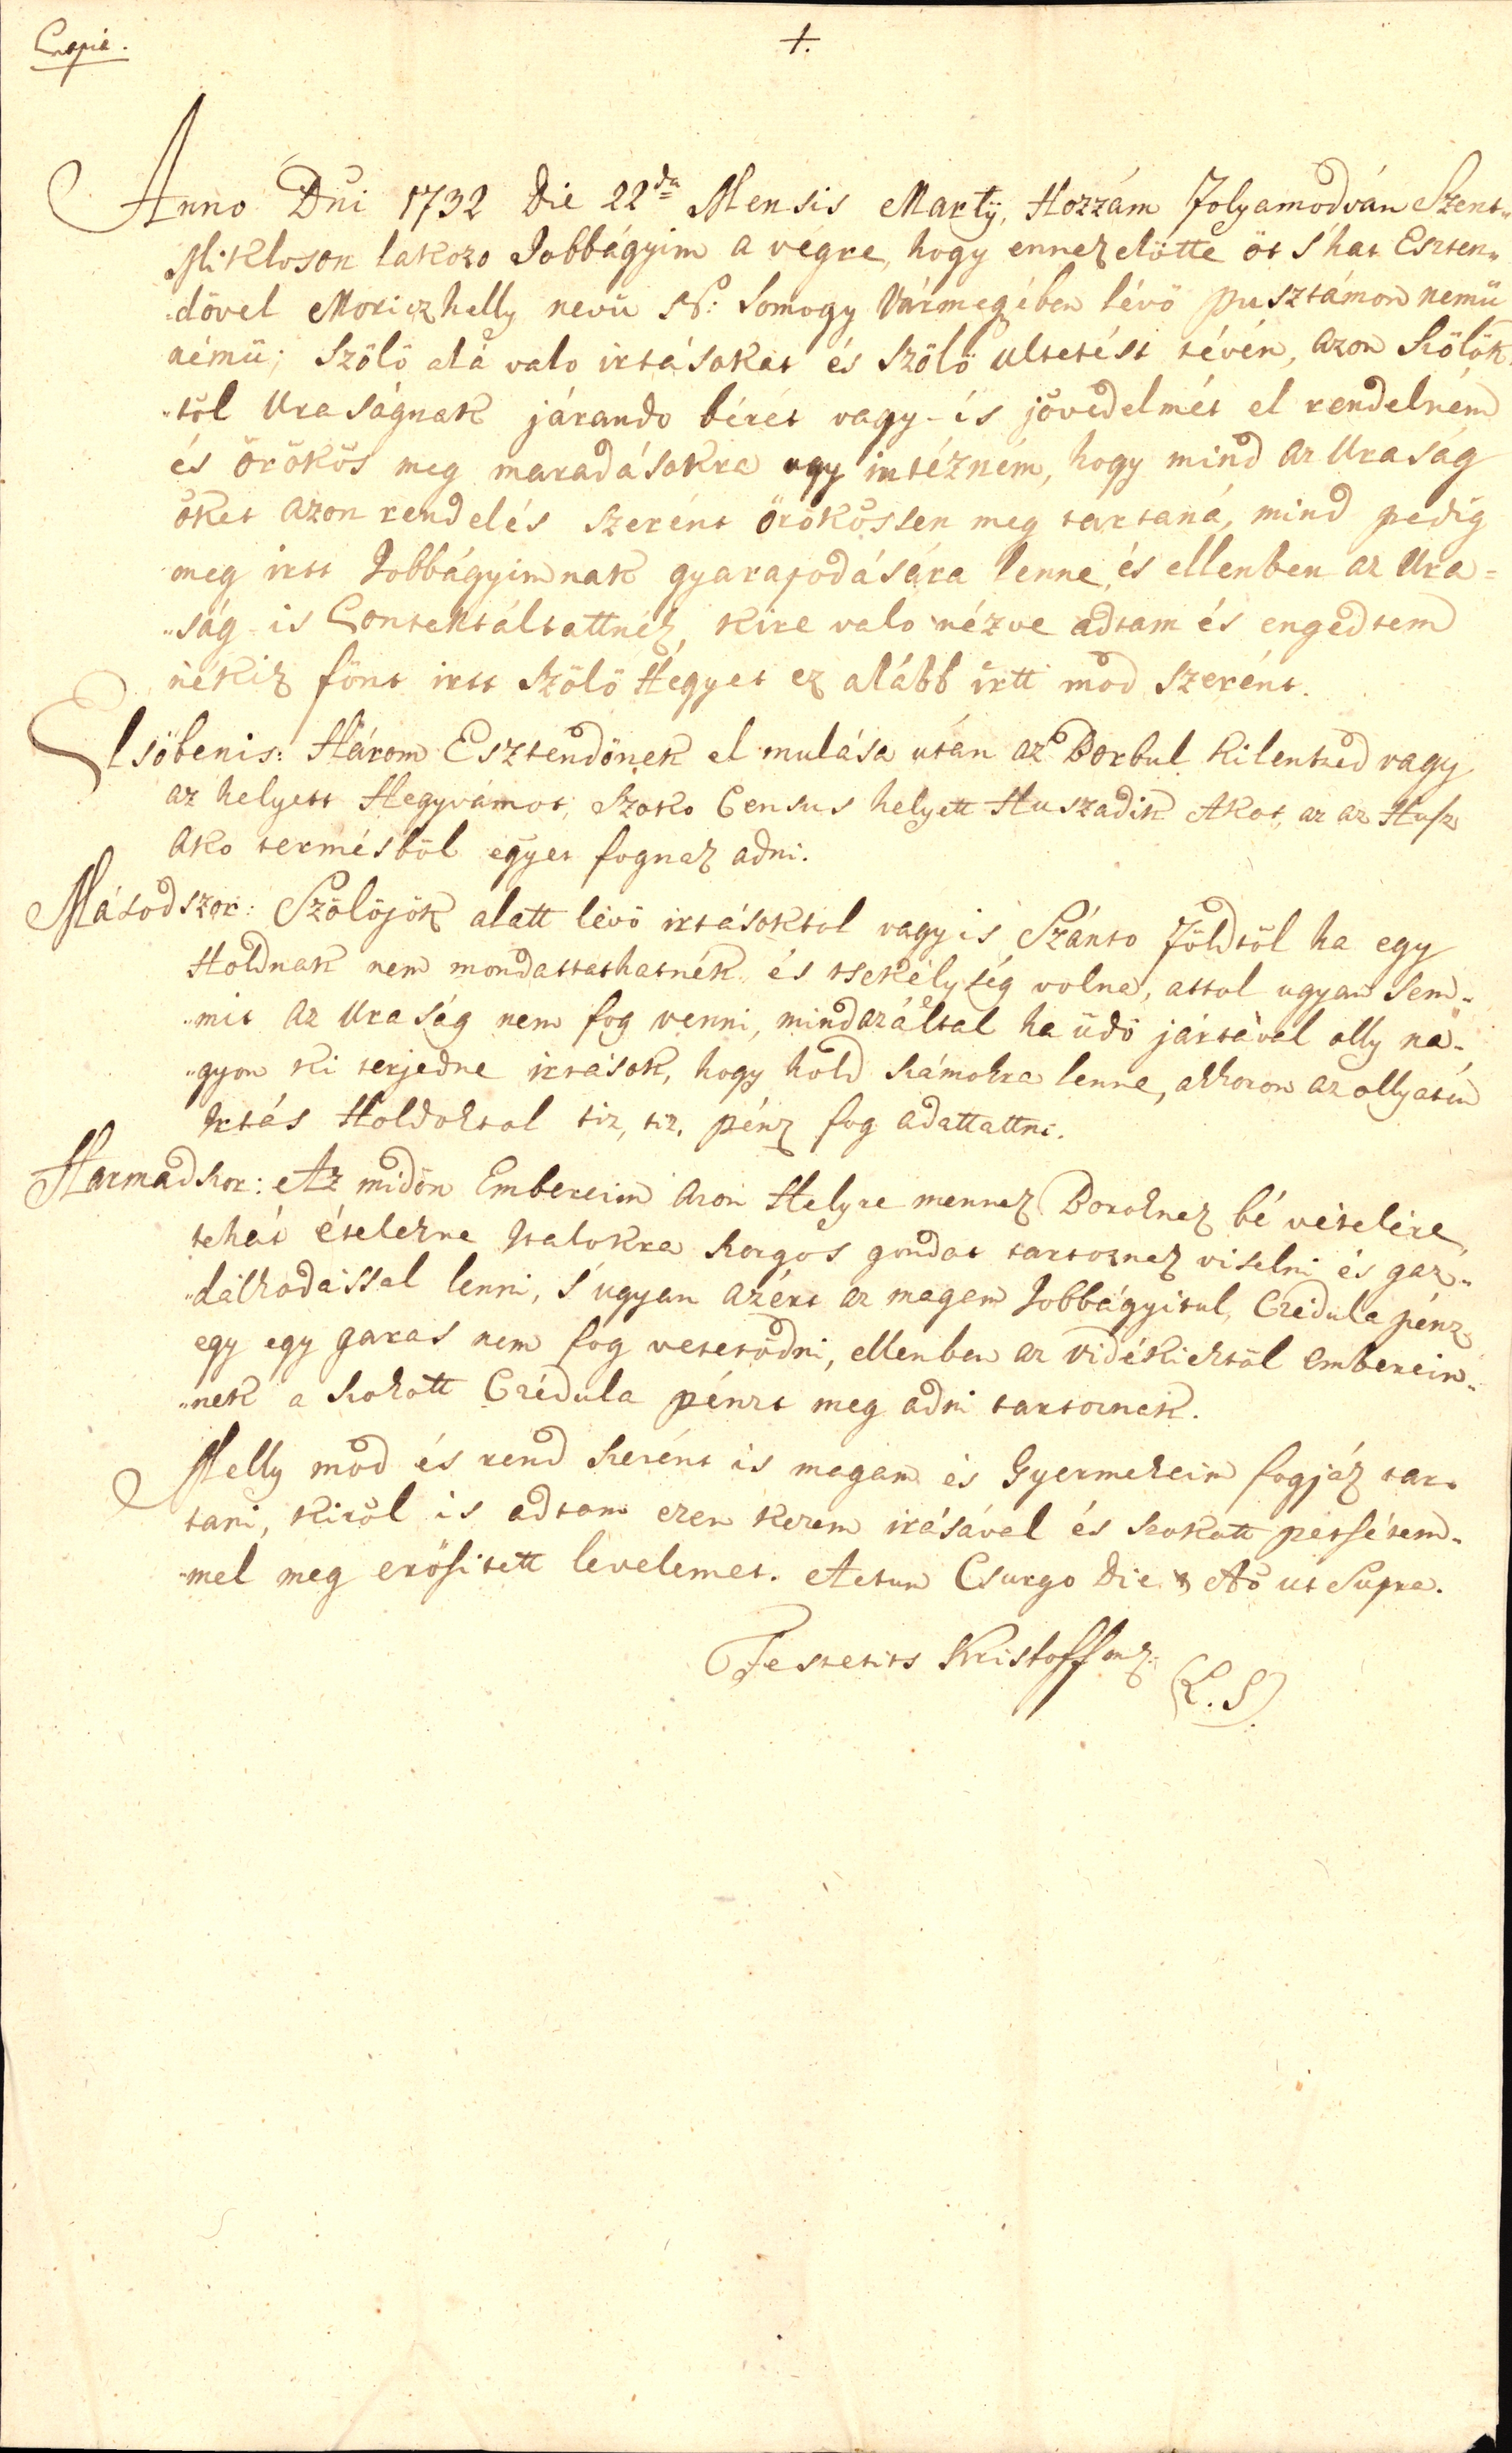 Copia.
1.
Anno Dni 1732 Die 22da Mensis Martÿ, Hozzám Folyamodván Szent„
Mikloson lakozo Jobbágyim a végre, hogy ennezelötte öt s'hat Eszten„
„dövel Moriczhelly nevü N: Somogy Vármegében lévö pusztámon nemü
némü; Szölö alá valo irtásokat és Szölö ultetést tévén, azon Szölök„
„töl Uraságnak járando bérét vagy-is jövedelmét el rendelném
és örökös meg maradásokra ugy intézném, hogy mind az Uraság
öket azon rendelés szerént örökössen meg tartaná, mind pedig
meg irtt Jobbágyimnak gyarapodására lenne, és ellenben az Ura=
„ság-is Contentáltattnék, kire valo nézve adtam és engedtem
nékik fönt irtt Szölö Hegyet ez alább irtt mod szerént.
Elsöbenis: Három Esztendönek el mulása után az Borbul kilentzed vagy
az helyett Hegyvámot, Szoko Census helyett Huszadik Akot, az az Husz
Ako termésböl egyet fognak adni.
Másodszor: Szölöjök alatt lévö irtásoktol vagy is Szánto Földtöl ha egy
Holdnak nem mondattathatnék és tsekélység volna, attol ugyan Sem„
„mit az Uraság nem fog venni, mindazáltal ha üdö jártával olly na„
„gyon ki terjedne irtások, hogy hold számokra lenne, akkoron az ollyatin
Irtás Holdoktol tiz, tiz, pénz fog adattattni.
Harmadszor: Az midön Embereim azon Helyre mennek Boroknek bé vételére,
tehát ételekre Italokra szorgos gondot tartoznek viselni és gaz„
„dálkodással lenni, s'ugyan azért az magam Jobbágyitul, Czédula pénz
egy egy garas nem fog vetetödni, ellenben az vidékiektöl emberein„
„nek a szokott Czédula pénzt meg adni tartoznek.
Melly mod és rend szerént is magam és Gyermekeim fogják tar„
tani, kiröl is adtam ezen kezem irásával és szokott petsétem„
„mel meg erösitett levelemet. Actum Csurgo Die & Aõ ut Supra.
Festetits Kristoff mk.
(L. S)